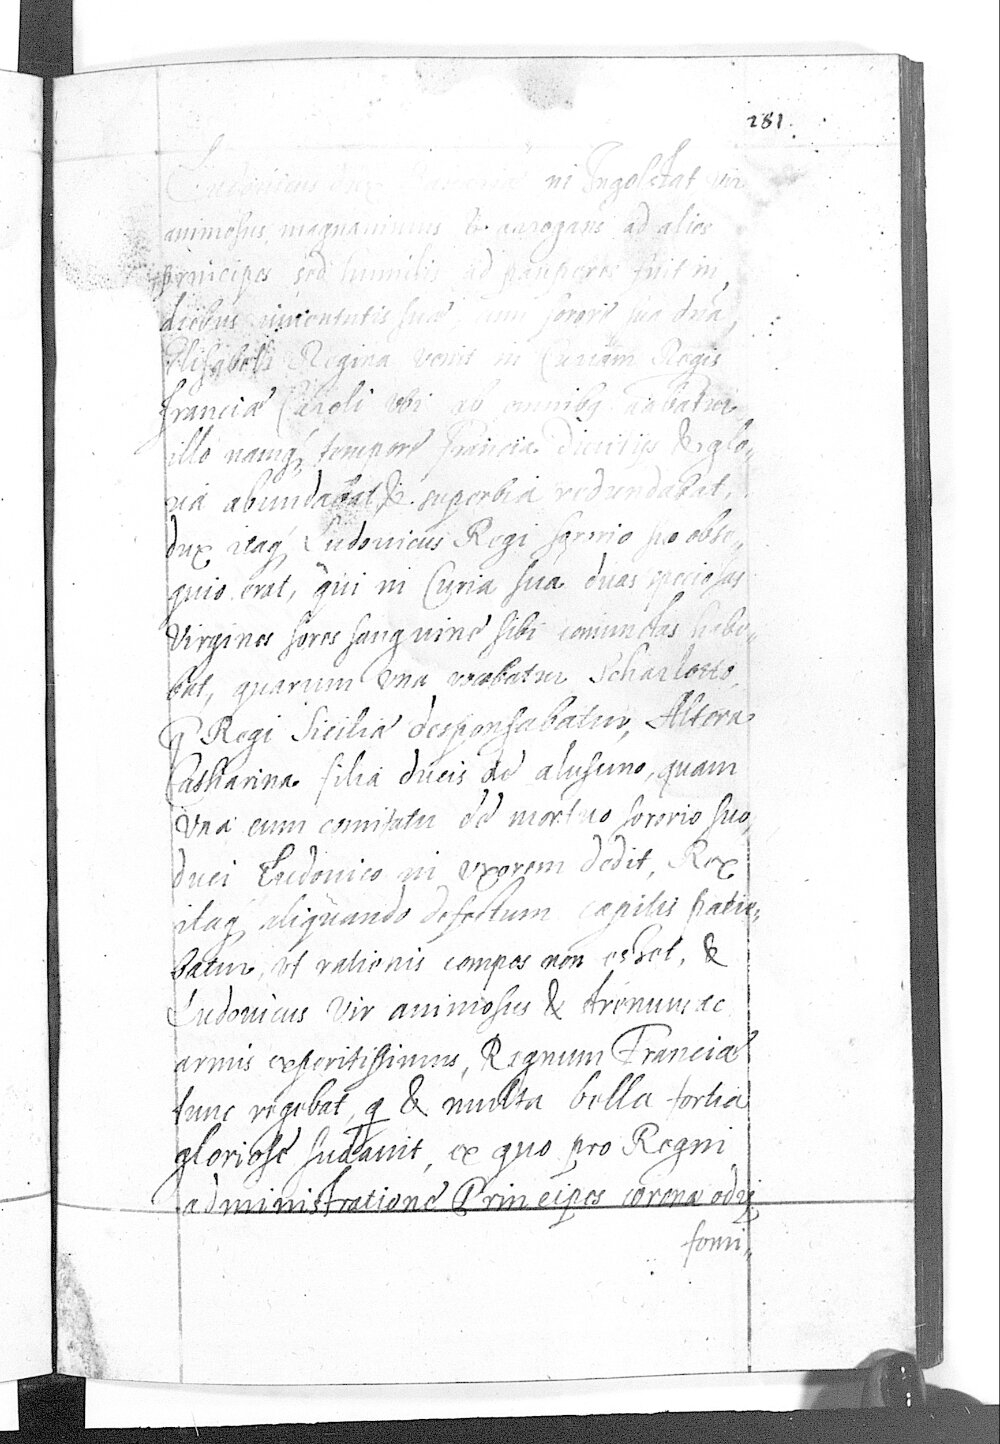 281.
Ludovicus dux Bavariæ in Ingolstat vir
animosus, magnanimus & arrogans ad alios
principes sed humilis ad pauperes fuit in
diebus iuventutis suæ, cum sorore sua dña
Elisabeth Regina venit in Curiam Regis
Franciæ Caroli ubi ab omnibq
illo namq tempore Francia divitijs & glo„
ria abundabat & superbia redundabat,
dux itaq Ludovicus Regi sororio suo obse„
quio erat, qui in Curia sua duas speciosas
Virgines sores sanguine sibi coniunctas habe„
bat, quarum Una vocabatur Scharlotto,
q Regi Siciliæ desponsabatur, Altera
Catharina filia ducis de alusuno, quam
Una cum comitatu de mortuo sororio suo,
duci Ludovico in uxorem dedit, Rex
itaq aliquando defectum capitis patie„
batur, ut rationis compos non esset, &
Ludovicus Vir animosus & strenuus ac
armis expertissimus, Regnum Franciæ
tunc regebat, q & multa bella fortia
gloriose sudavit, ex quo pro Regni
administratione Principes corona
fomi„